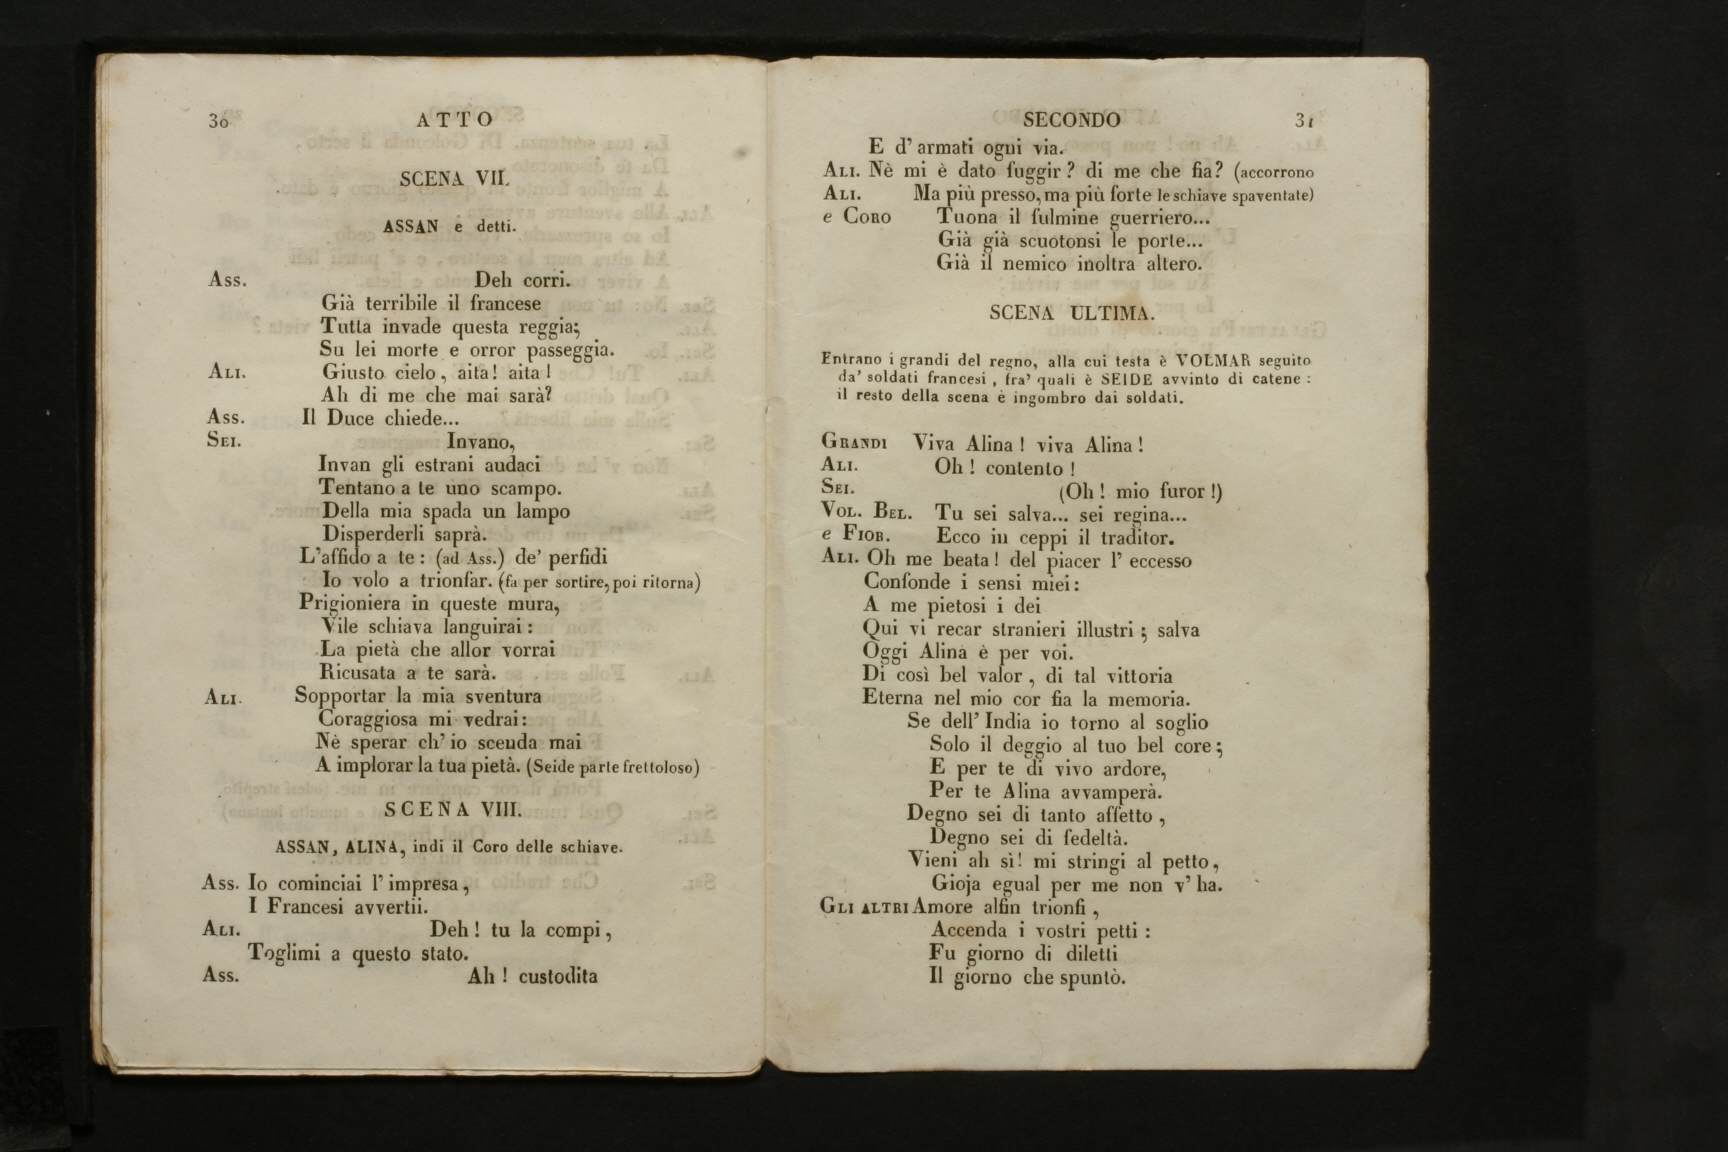 30 ATTO
SCENA VII.
ASSAN e detti.
Ass. Deh corri.
Già terribile il francese
Tutta invade questa reggia;
Su lei morte e orror passeggia.
Ali. Giusto cielo, aita! aita!
Ah di me che mai sarà?
Ass. Il Duce chiede...
Sei. Invano,
Invan gli estrani audaci
Tentano a te uno scampo.
Della mia spada un lampo
Disperderli saprà.
L'affido a te: (ad Ass.) de' perfidi
Io volo a trionfar. (fa per sortire, poi ritorna)
Prigioniera in queste mura,
Vile schiava languirai:
La pietà che allor vorrai
Ricusata a te sarà.
Ali. Sopportar la mia sventura
Coraggiosa mi vedrai:
Nè sperar ch' io scenda mai
A implorar la tua pietà. (Seide parte frettoloso)
SCENA VIII.
ASSAN, ALINA, indi il Coro delle schiave.
Ass. Io cominciai l' impresa,
I Francesi avvertii.
Ali. Deh! tu la compi,
Toglimi a questo stato.
Ass. Ah! custodita
SECONDO 31
E d' armati ogni via.
Ali. Nè mi è dato fuggir? di me che fia? (accorrono
Ali. Ma più presso, ma più forte le schiave spaventate)
e Coro Tuona il fulmine guerriero...
Già già scuotonsi le porte...
Già il nemico inoltra altero.
SCENA ULTIMA.
Entrano i grandi del regno, alla cui testa è VOLMAR seguito
da' soldati francesi, fra' quali è SEIDE avvinto di catene:
il resto della scena è ingombro dai soldati.
Grandi Viva Alina! viva Alina!
Ali. Oh! contento!
Sei. (Oh! mio furor!)
Vol. Bel. Tu sei salva... sei regina...
e Fior. Ecco in ceppi il traditor.
Ali. Oh me beata! del piacer l' eccesso
Confonde i sensi miei:
A me pietosi i dei
Qui vi recar stranieri illustri; salva
Oggi Alina è per voi.
Di così bel valor, di tal vittoria
Eterna nel mio cor fia la memoria.
Se dell' India io torno al soglio
Solo il deggio al tuo bel core;
E per te di vivo ardore,
Per te Alina avvamperà.
Degno sei di tanto affetto,
Degno sei di fedeltà.
Vieni ah sì! mi stringi al petto,
Gioja egual per me non v' ha.
Gli altri Amore alfin trionfi,
Accenda i vostri petti:
Fu giorno di diletti
Il giorno che spuntò.